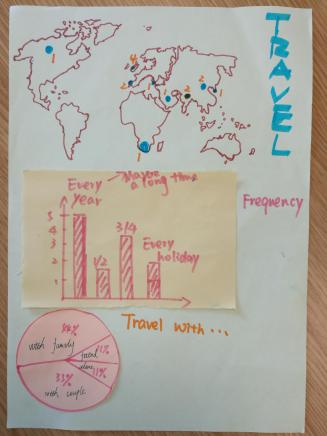 TRAVEL
4
1
2
1
2
2
1
1
Every year
Maybe a long time
Frequency
5
4
3
2
1
1/2
3/4
Every holiday
Travel with...
with family
11%
friend
alone
11%
33%
with couple